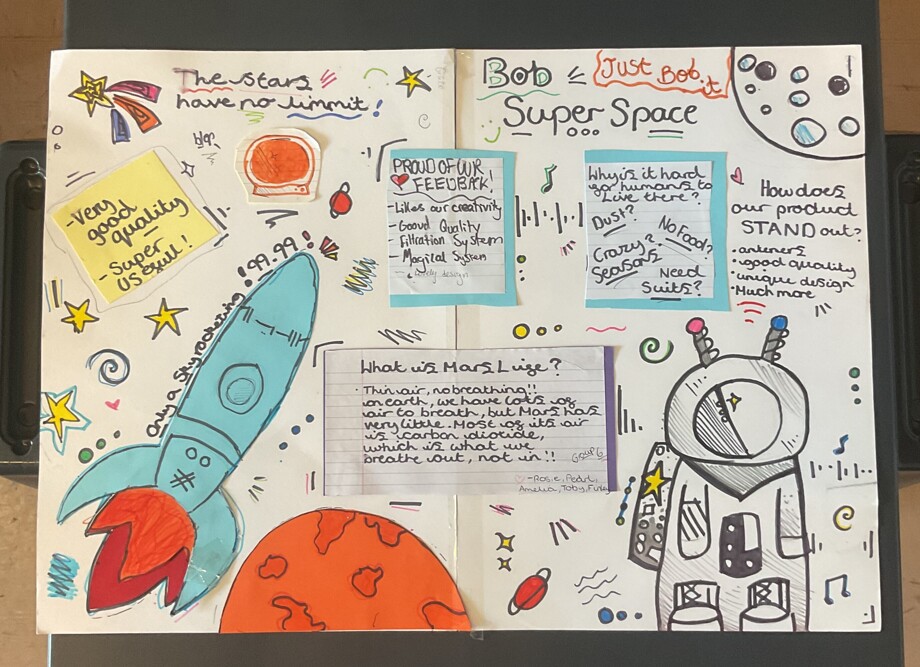 The stars
have no limmit!
Bob
Just Bob it
Super Space
-Very
good
quality
-Super
Usefull!
PROUD OF OUR
FEEDBACK!
- Likes our creativity
- Good Quality
- Filtration System
- Magical System
- Lovely design
Why is it hard
for humans to
"Live there?
Dust?
No Food?
Crazy?
Seasons
Need
Suits?
How does
our product
STAND out?
• anteners
• good quality
• unique design
• Much more
Only a skyrocketing £99.99!
What is Mars Like?
· Thin air, no breathing!!
on earth, we have lots of
air to breath, but Mars has
very little. Most of its air
is carbon dioxide,
which is what we
breathe out, not in!!
Group 6
Amelia, Toby,